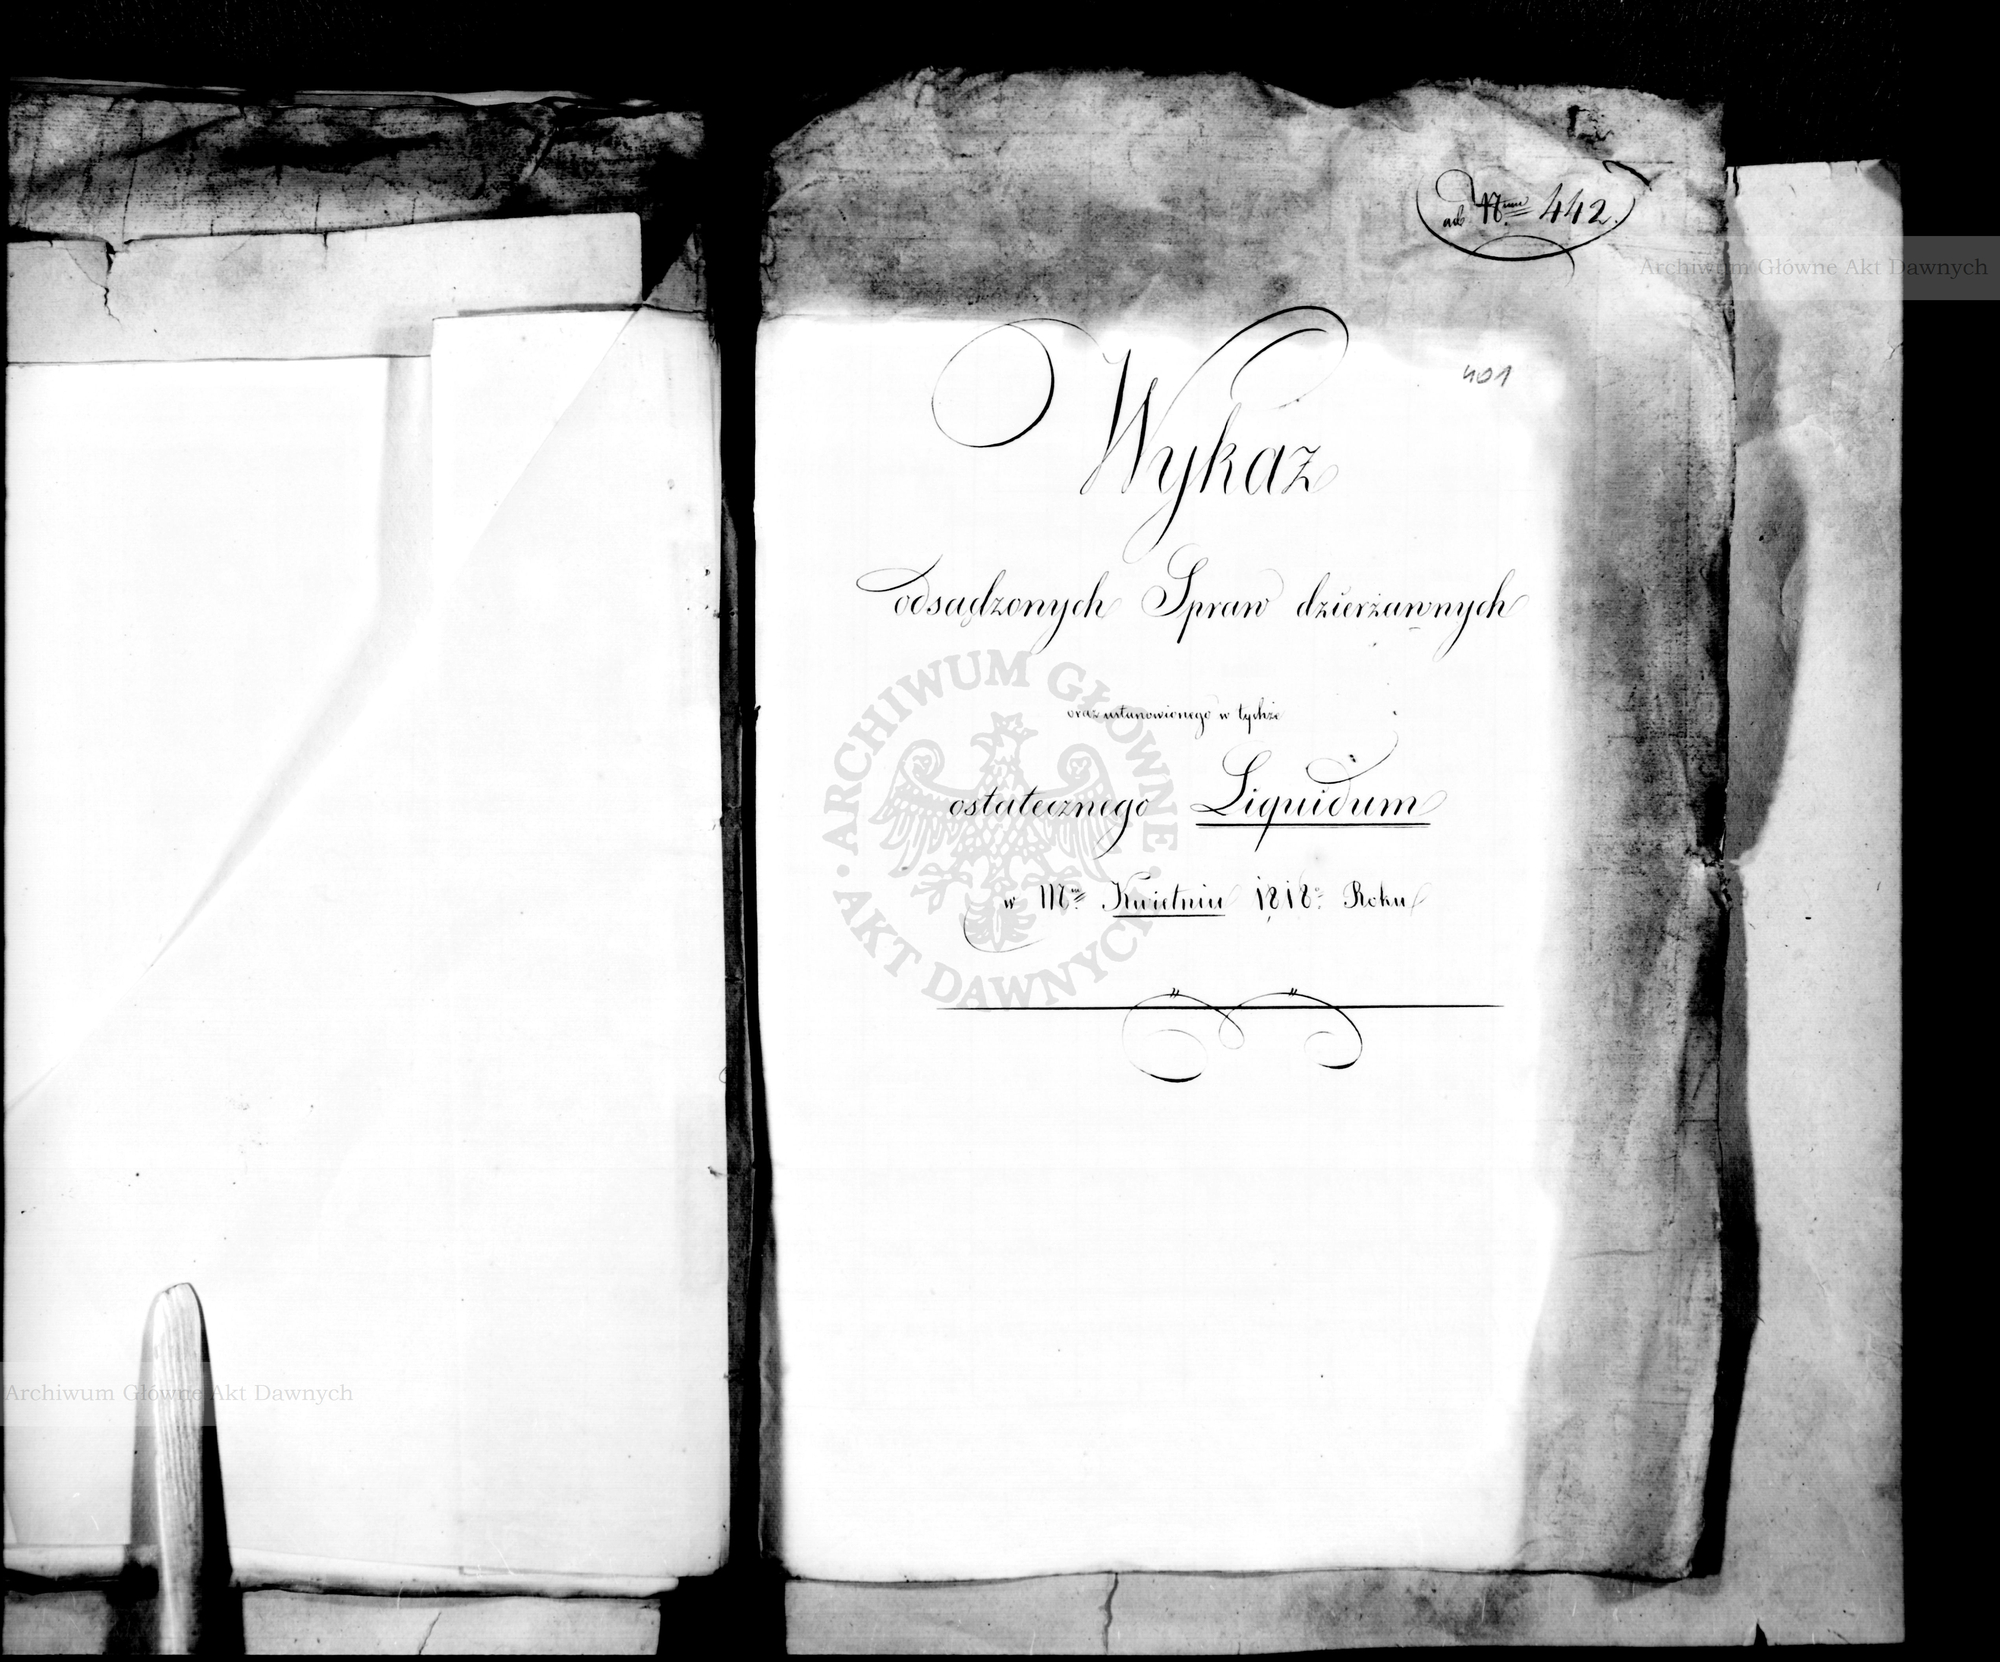 ad Nrum 442.
401
Wykaz
odsądzonych Spraw dzierżawnych
oraz ustanowionego w tychże
ostatecznego Liquidum
w Mcu Kwietniu 1818o Roku
Archiwum Główne Akt Dawnych
ARCHIWUM GŁÓWNE
AKT DAWNYCH
Archiwum Główne Akt Dawnych